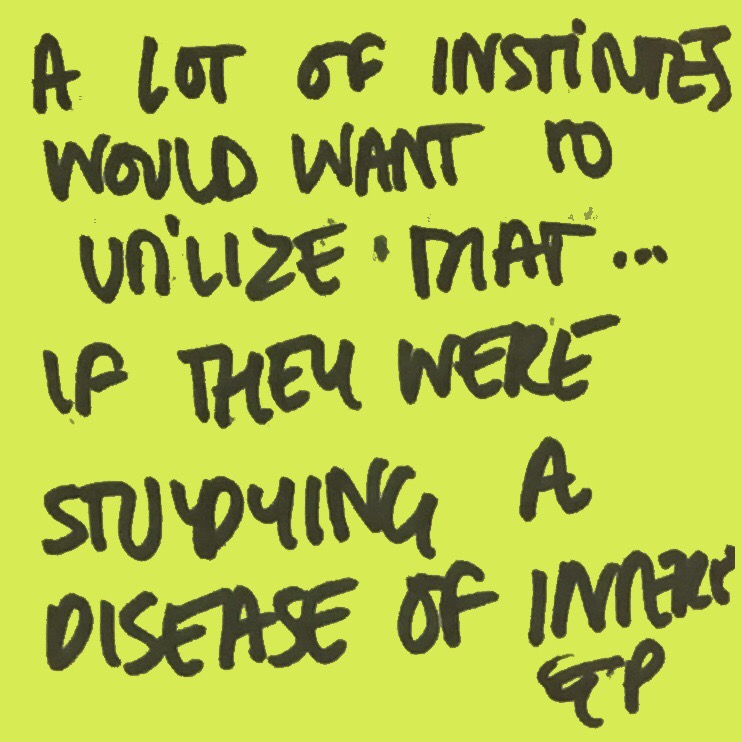 A LOT OF INSTITUTES
WOULD WANT TO
UTILIZE THAT...
IF THEY WERE
STUDYING A
DISEASE OF
GP